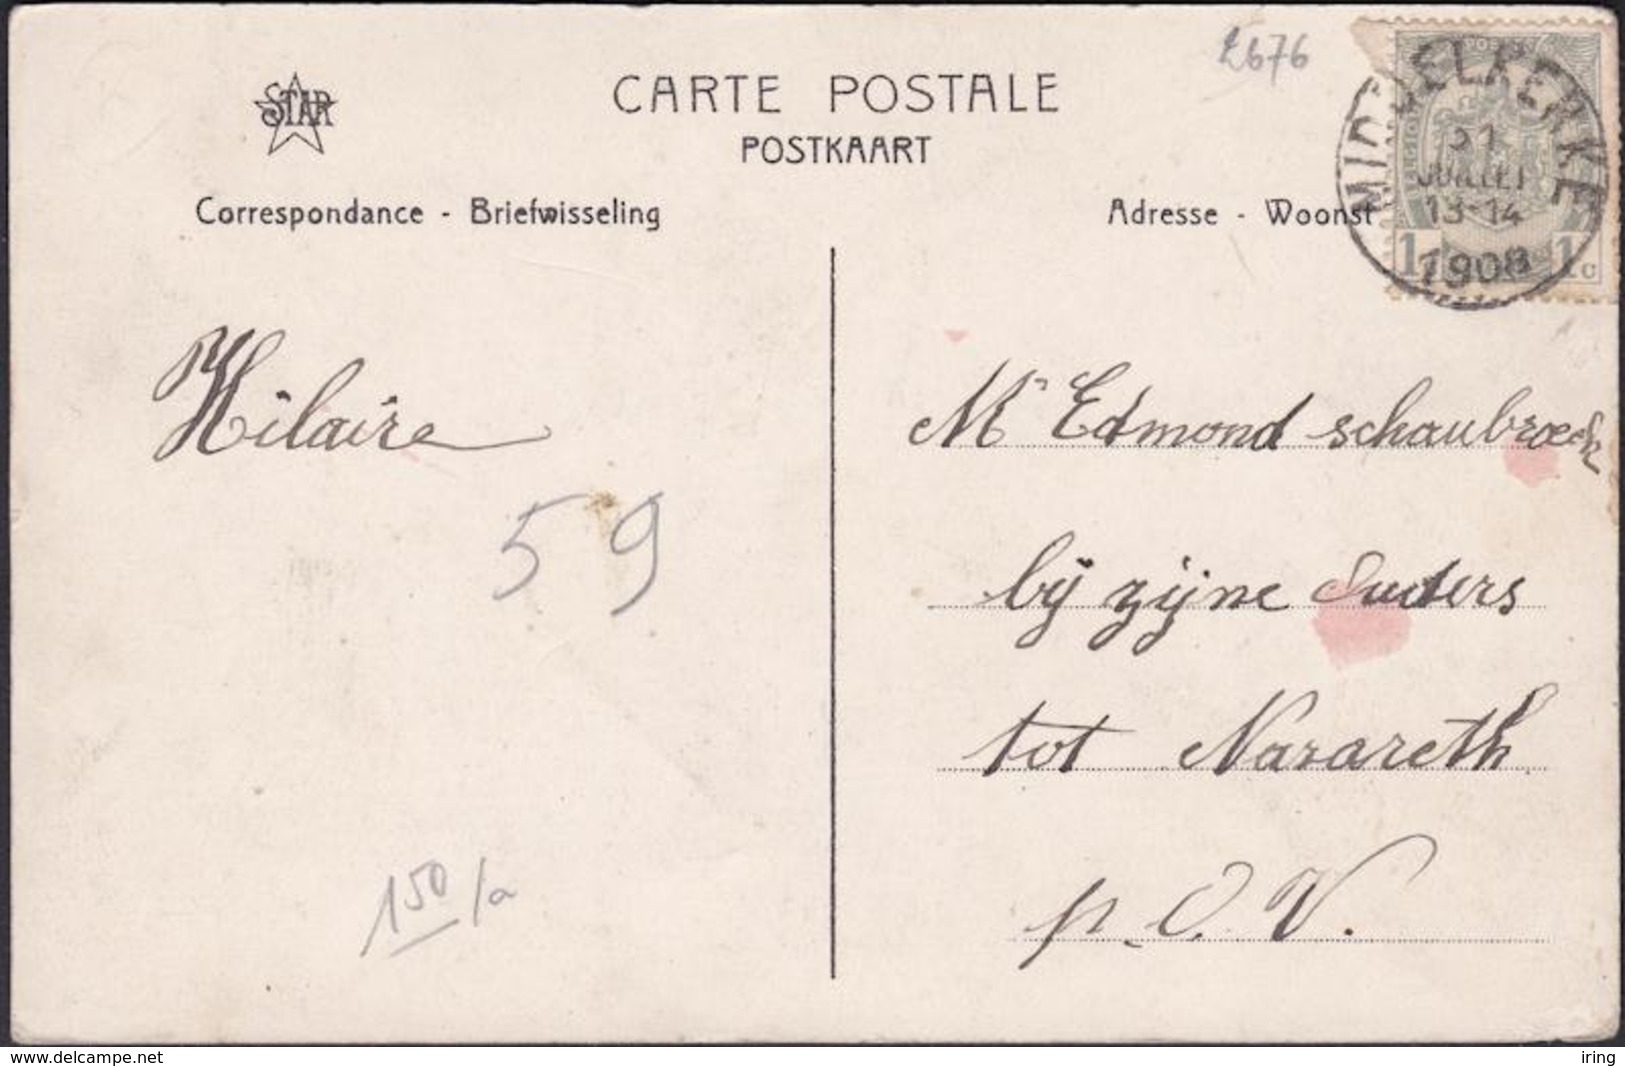 2676
STAR
CARTE POSTALE
POSTKAART
MIDDELKERKE
31
JUILLET
13-14
1908
1 1c
Correspondance - Briefwisseling
Adresse - Woonst
Hilaire
Mr Edmond schaubroeck
59
bij zijne Ouders
tot Nazareth
150/a
p. O. V.
www.delcampe.net
iring